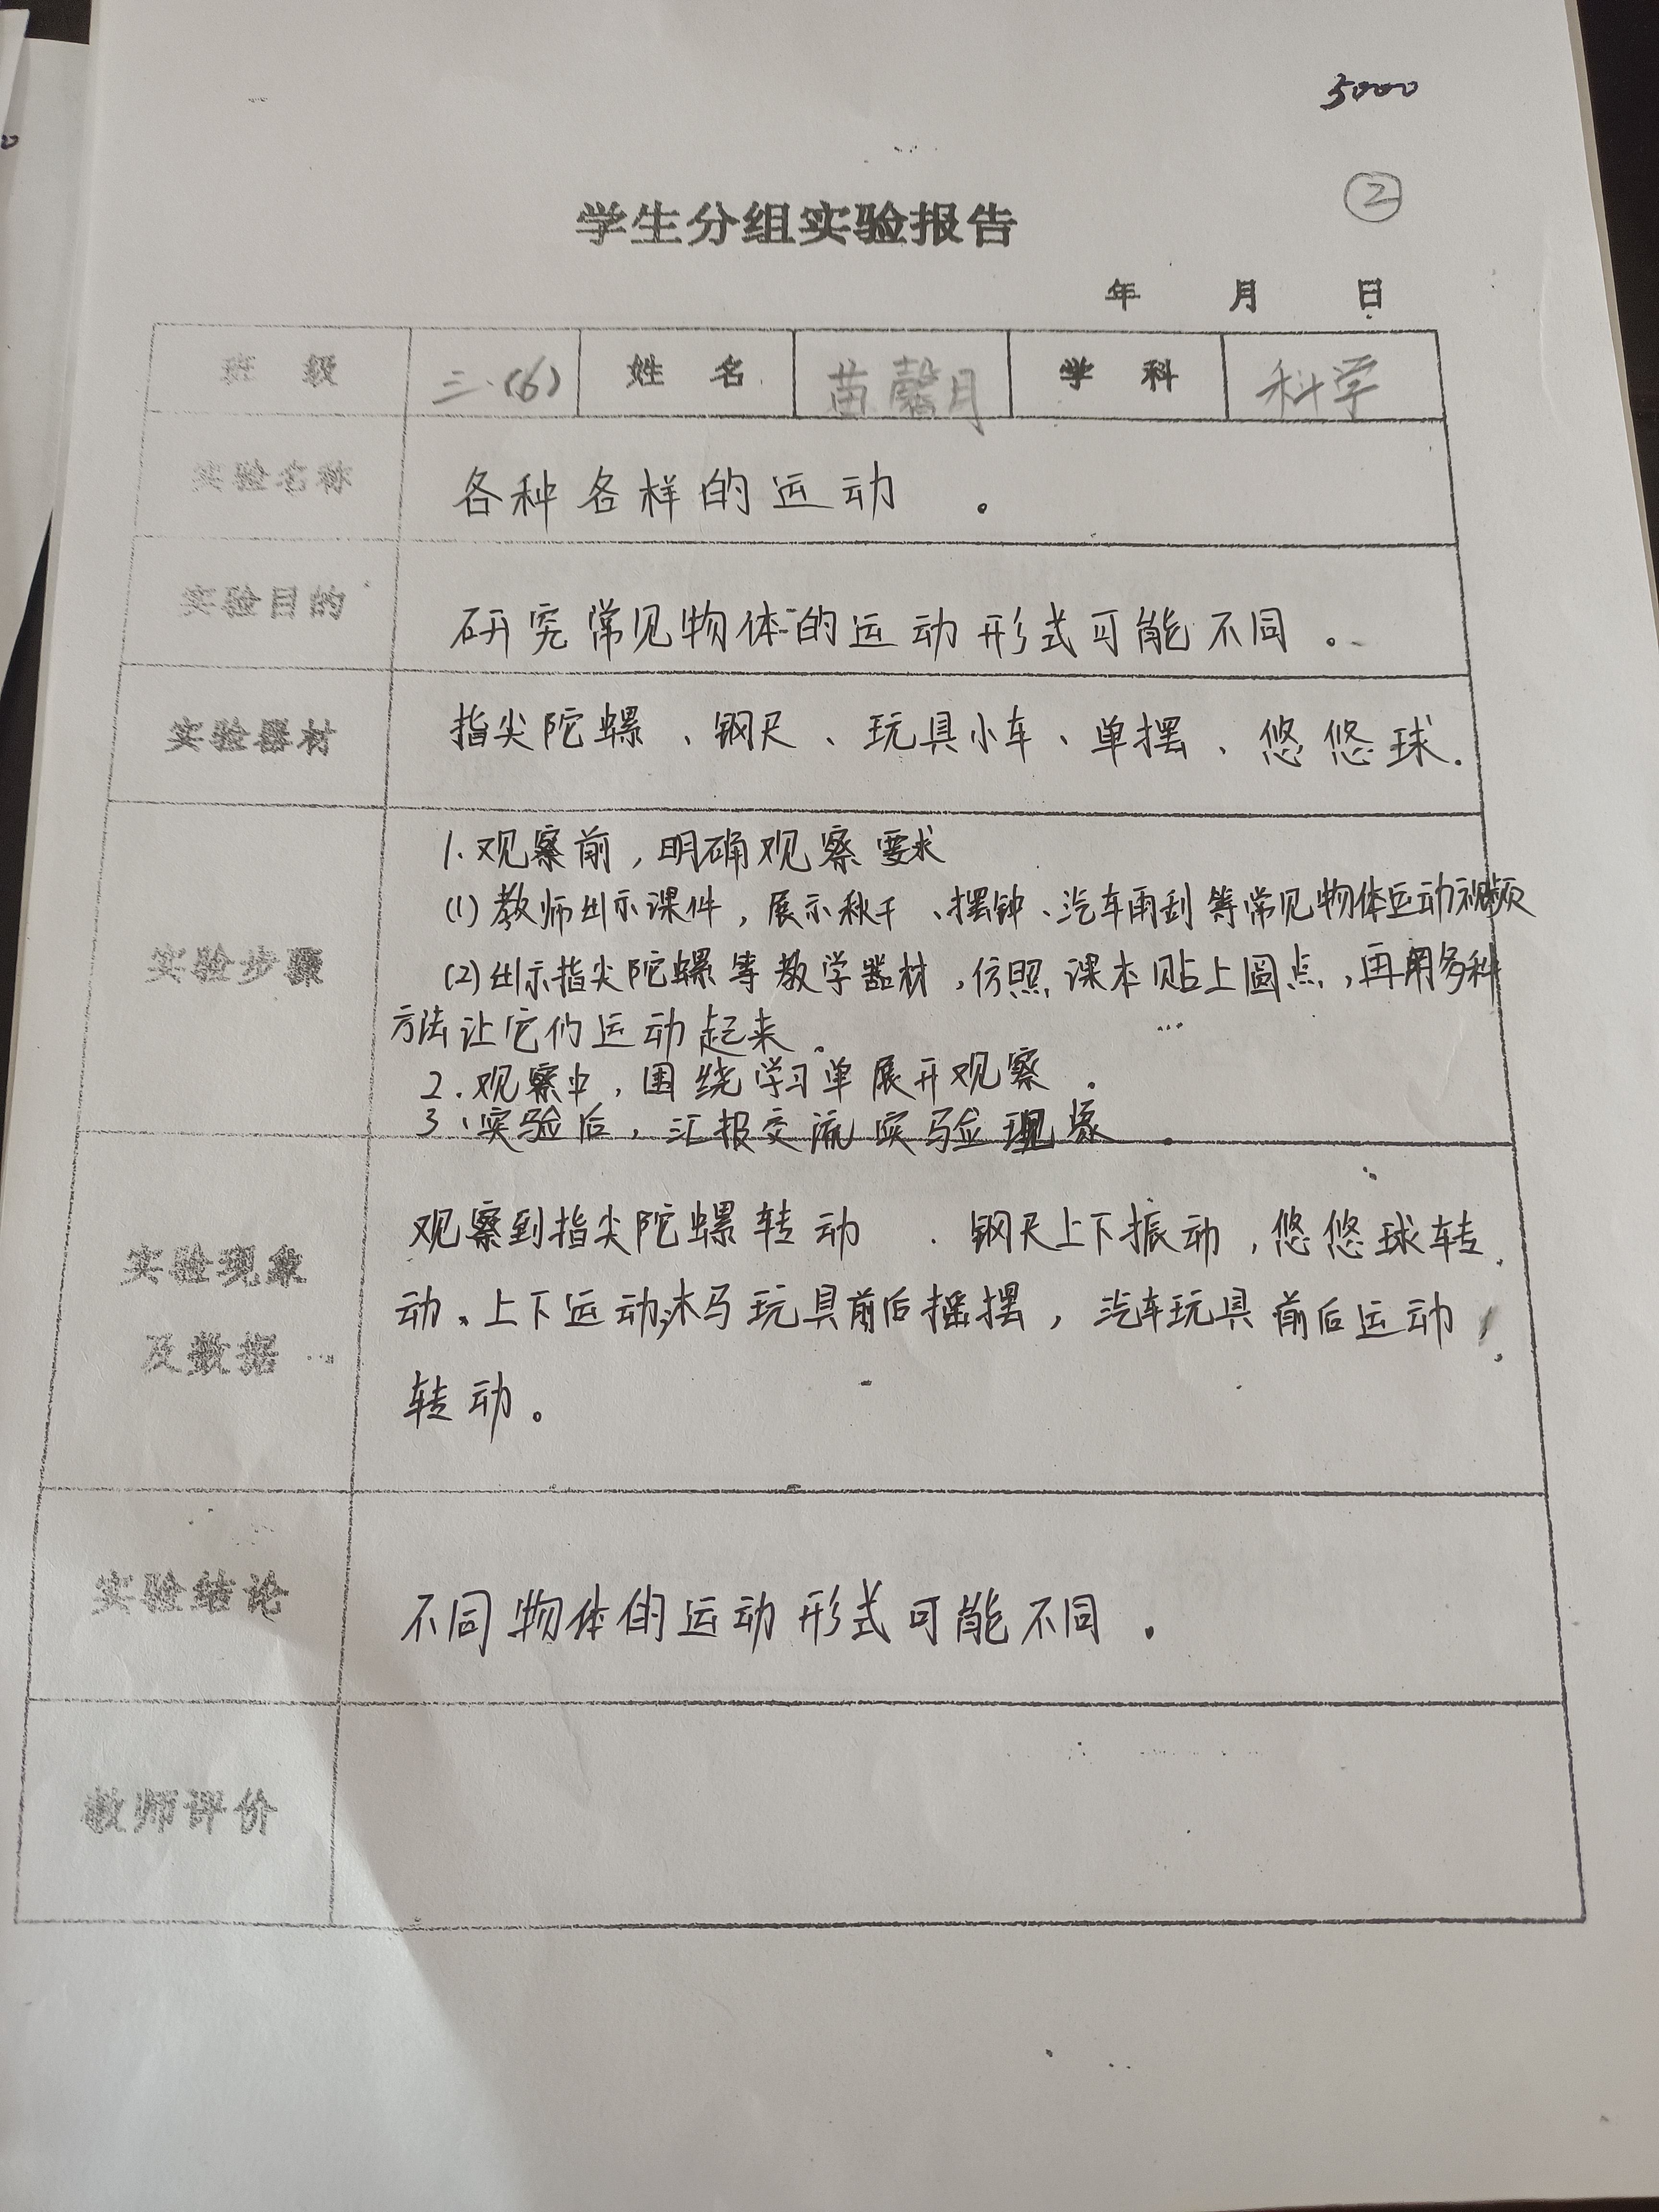 5000
②
学生分组实验报告
年 月 日
班 级 三.(6) 姓 名 苗馨月 学 科 科学
实验名称 各种各样的运动 。
实验目的 研究常见物体的运动形式可能不同。
实验器材 指尖陀螺、钢尺、玩具小车、单摆、悠悠球.
实验步骤
1.观察前,明确观察要求
(1)教师出示课件,展示秋千、摆钟、汽车雨刮等常见物体运动视频
(2)出示指尖陀螺等教学器材,仿照课本贴上圆点,再用多种
方法让它们运动起来。
2.观察中,围绕学习单展开观察.
3、实验后,汇报交流实验现象.
实验现象
及数据
观察到指尖陀螺转动 . 钢尺上下振动,悠悠球转
动、上下运动,木马玩具前后摇摆,汽车玩具前后运动,
转动。
实验结论 不同物体的运动形式可能不同.
教师评价